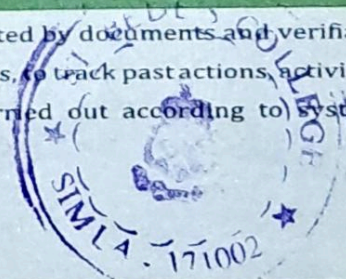 ted by documents and verifia
s, to track past actions, activi
rried out according to syst
COLLEGE
SIMLA - 171002